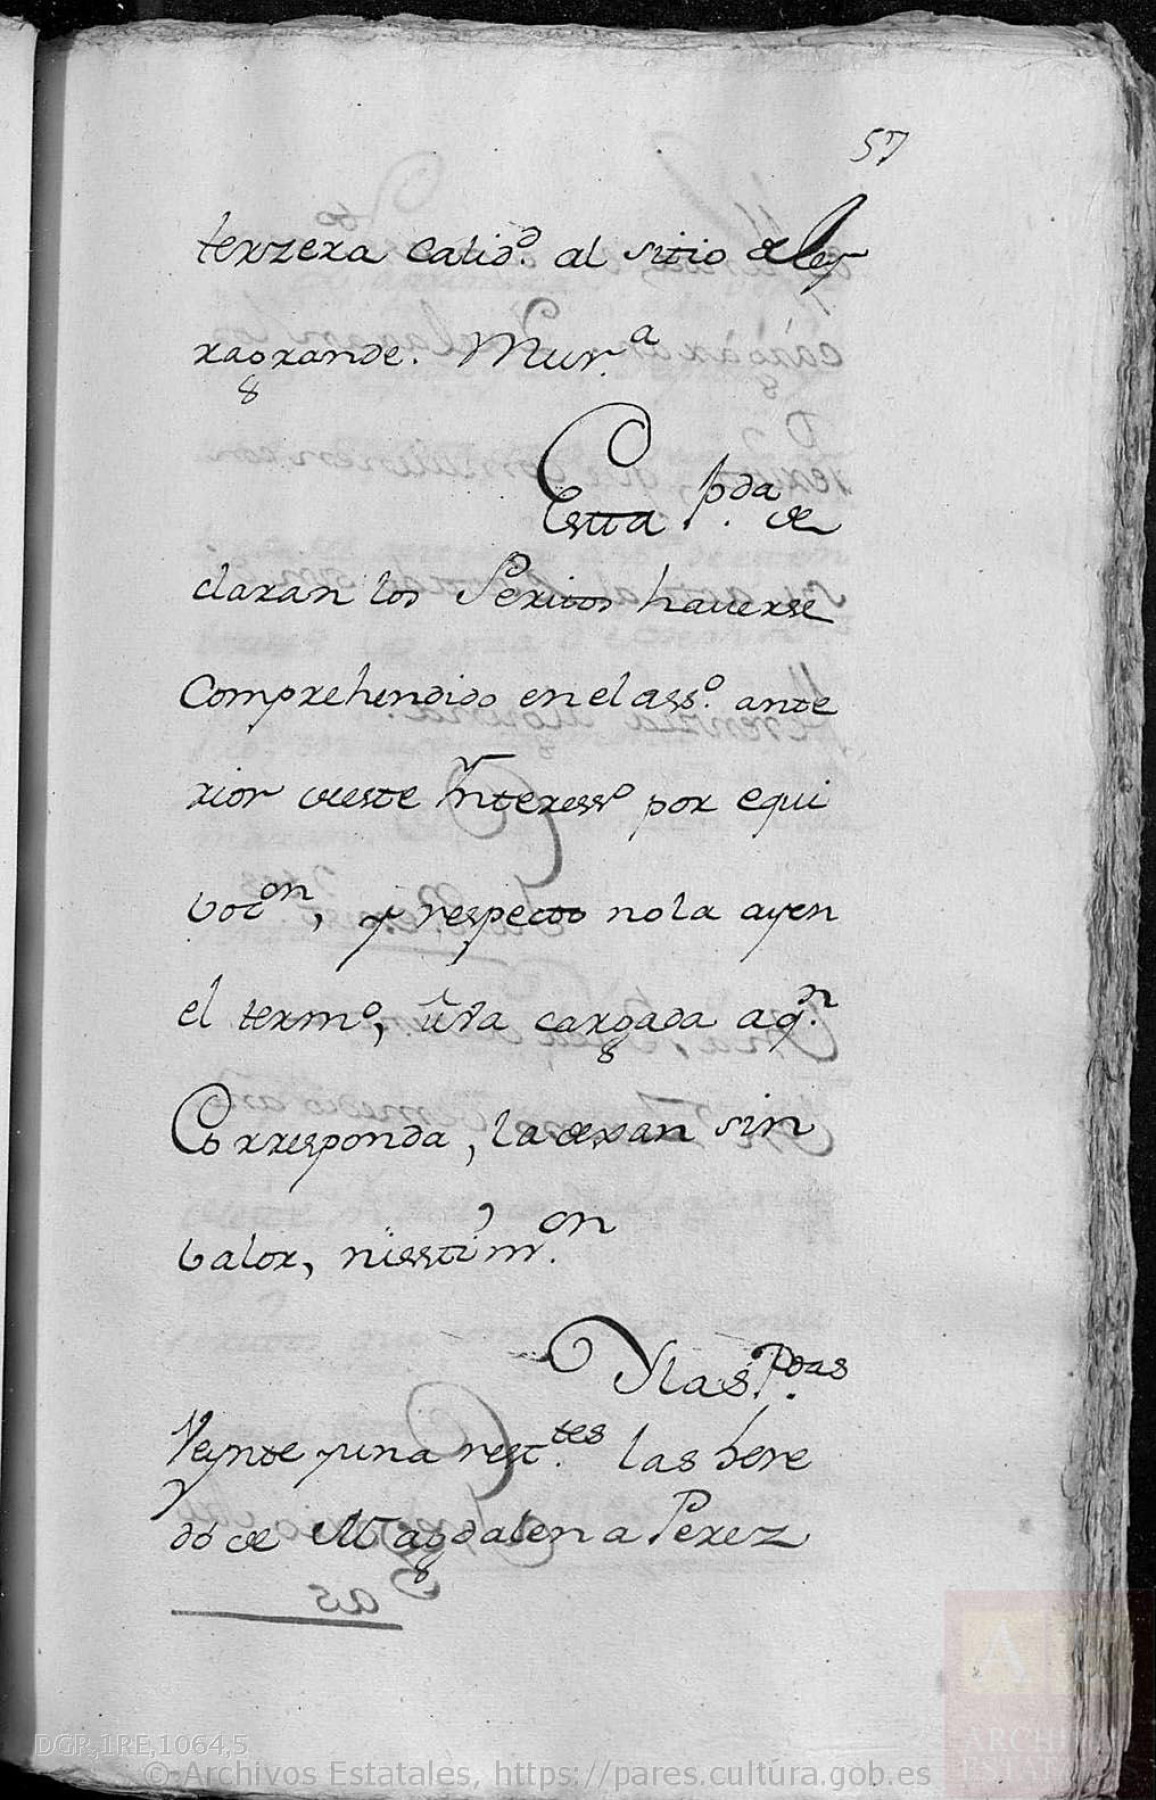 57
terzera calidᵈ. al sitio de ley
ragrande. Murᵃ.
Estta pᵈᵃ. de
claran los Peritos hauerse
Comprehendido en el assᵒ. ante
rior de este Ynteressᵒ por equi
bocᵒⁿ, y respecto no la ay en
el termᵒ, ni va cargada a qⁿ.
Corresponda, la dexan sin
balor, ni esstimᵒⁿ.
Y las Pᵈᵃˢ.
Veynte y una restᵗᵉˢ. las here
dó de Magdalena Perez
DGR,1RE,1064,5
© Archivos Estatales, https://pares.cultura.gob.es